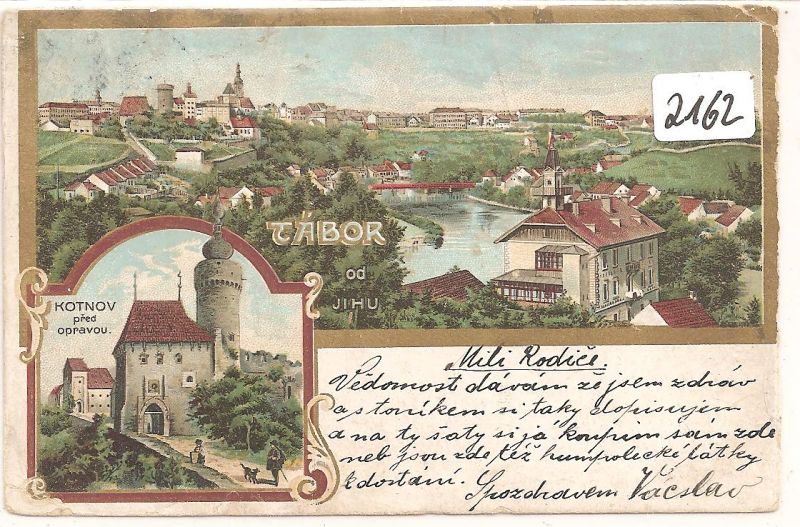 2162
TÁBOR
od
JIHU
KOTNOV
před
opravou.
Milí Rodiče,
Vědomost dávám že jsem zdráv
a s toníkem si taky dopisujem
a na ty šaty si já koupim sám zde
neb jsou zde též humpolecké látky
k dostání. Spozdravem Vácslav